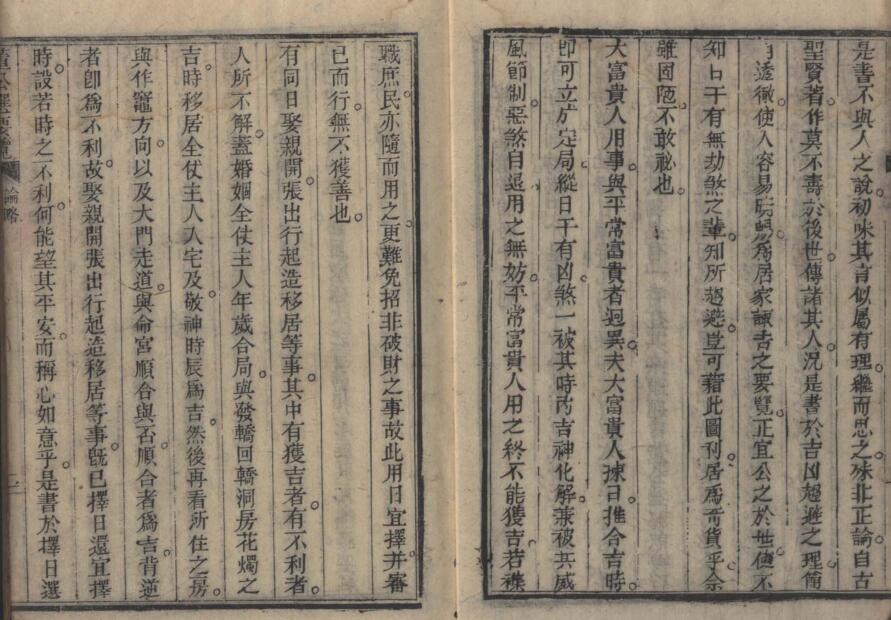 是書不與人之說。初味其言似屬有理。繼而思之。殊非正論。自古
聖賢著作莫不壽於後世。傳諸其人。况是書於吉凶趨避之理。簡
透徹。使人容易明曉。爲居家諏吉之要覽。正宜公之於世。使不
知日干有無劫煞之輩。知所趨避。豈可藉此圖刊居爲奇貨乎。余
雖固陋。不敢祕也。
大富貴人用事。與平常富貴者迥異。夫大富貴人揀日。推合吉時。
即可立應定局。縱日干有凶煞。一被其時內吉神化解。兼被兵威
風節制。惡煞自退。用之無妨。平常富貴人用之。終不能獲吉。若襍
職庶民亦隨而用之。更難免招非破財之事。故此用日宜擇。并審
己而行。無不獲善也。
有同日娶親開張出行起造移居等事。其中有獲吉者。有不利者。
人所不解。蓋婚姻全仗主人年歲合局。與發轎回轎洞房花燭之
吉時。移居全仗主人入宅及敬神時辰爲吉。然後再看所住之房。
與作竈方向。以及大門走道。與命宮順合與否。順合者爲吉。背逆
者卽爲不利。故娶親開張出行起造移居等事。旣已擇日。還宜擇
時。設若時之不利。何能望其平安。而稱心如意乎。是書於擇日選
董公選要覽 論略 一